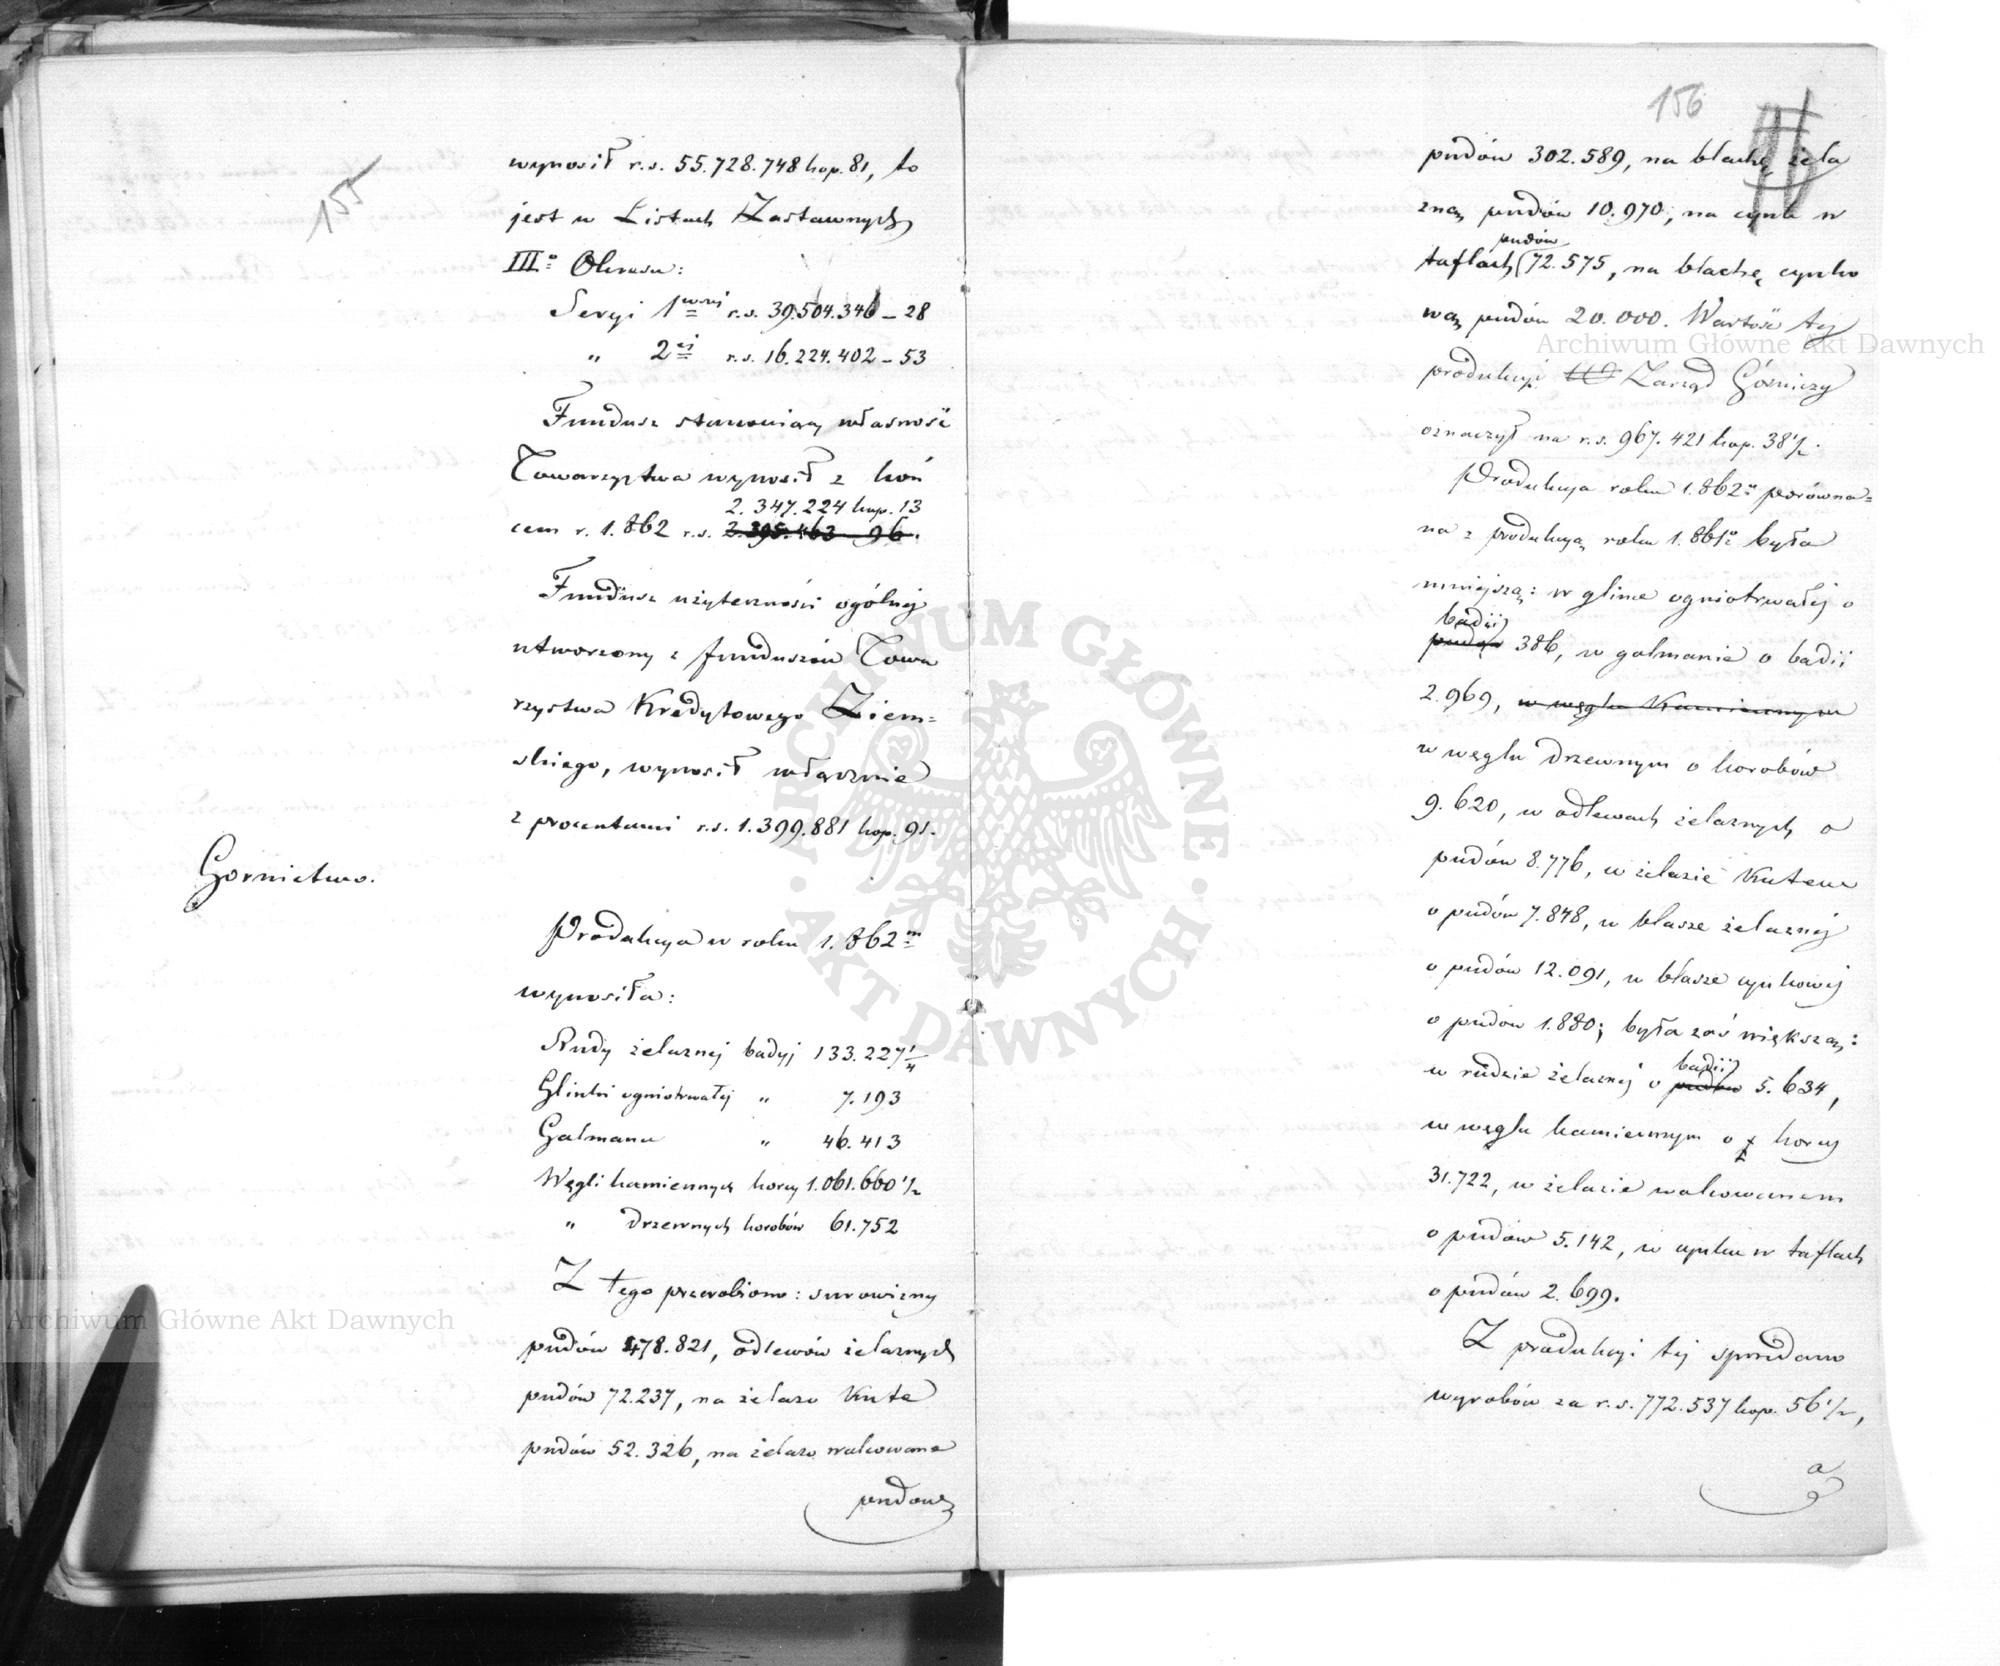 155
wynosił r.s. 55.728.748 kop. 81, to
jest w Listach Zastawnych
III.o Okresu:
Seryi 1wszej r.s. 39.504.346 – 28
" 2ej r.s. 16.224.402 – 53
Fundusz stanowiący własność
Towarzystwa wynosił z koń
2.347.224 kop. 13
cem r. 1.862 r.s. 2.395.463 96.
Fundusz użyteczności ogólnej
utworzony z funduszów Towa
rzystwa Kredytowego Ziem=
skiego, wynosił włącznie
z procentami r.s. 1.399.881 kop. 91.
Gornictwo.
Produkcya w roku 1.862m
wynosiła:
Rudy żelaznej badyj 133.227 1/4
Glinki ogniotrwałej " 7.193
Galmanu " 46.413
Węgli kamiennych korcy 1.061.660 1/2
" drzewnych korobów 61.752
Z tego przerobiono: surowizny
pudów 478.821, odlewów żelaznych
pudów 72.237, na żelazo Kute
pudów 52.326, na żelazo walcowane
pudów
156
pudów 302.589, na blachę żela
zną pudów 10.970, na cynk w
pudów
taflach 72.575, na blachę cynko
wą pudów 20.000. Wartość tej
produkcyi Zarząd Górniczy
oznaczył na r.s. 967.421 kop. 38 1/2.
Produkcya roku 1.862o porówna=
na z produkcyą roku 1.861o była
mniejszą: w glince ogniotrwałej o
badii
pudów 386, w galmanie o badii
2.969, w węglu Kamiennym
w węglu drzewnym o korobów
9.620, w odlewach żelaznych o
pudów 8.776, w żelazie Kutem
o pudów 7.848, w blasze żelaznej
o pudów 12.091, w blasze cynkowej
o pudów 1.880; była zaś większą:
badii
w rudzie żelaznej o pudów 5.634,
w węglu kamiennym o korcy
31.722, w żelazie walcowanem
o pudów 5.142, w cynku w taflach
o pudów 2.699.
Z produkcyi tej sprzedano
wyrobów za r.s. 772.537 kop. 56 1/2,
a
Archiwum Główne Akt Dawnych
Archiwum Główne Akt Dawnych
ARCHIWUM GŁÓWNE · AKT DAWNYCH ·